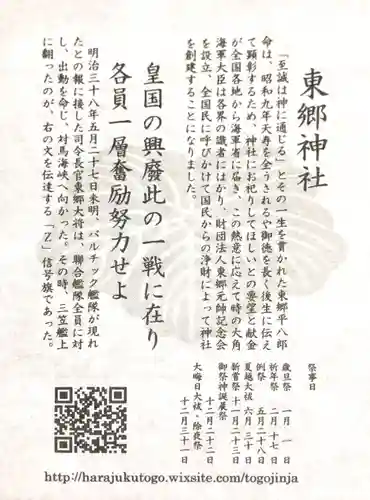 東郷神社
「至誠は神に通じる」とその一生を貫かれた東郷平八郎
命は、昭和九年天寿を全うされるや御徳を長く後生に伝え
て顕彰するため、神社にお祀りしてほしいとの要望と献金
が全国各地から海軍省に届き、この熱意に応えて時の大角
海軍大臣は各界の識者にはかり、財団法人東郷元帥記念会
を設立、全国民に呼びかけて国民からの浄財によって神社
を創建することになりました。
皇国の興廃此の一戦に在り
各員一層奮励努力せよ
明治三十八年五月二十七日未明、バルチック艦隊が現れ
たとの報に接した司令長官東郷大将は、聯合艦隊全員に対
し、出動を命じ、対馬海峡へ向かった。その時、三笠艦上
に翻ったのが、右の文を伝達する「Z」信号旗であった。
祭事日
歳旦祭 一月 一日
祈年祭 二月十七日
例祭 五月二十八日
夏越大祓 六月三十日
新嘗祭 十一月二十三日
御祭神誕辰祭
十二月二十二日
大晦日大祓・除夜祭
十二月三十一日
http://harajukutogo.wixsite.com/togojinja